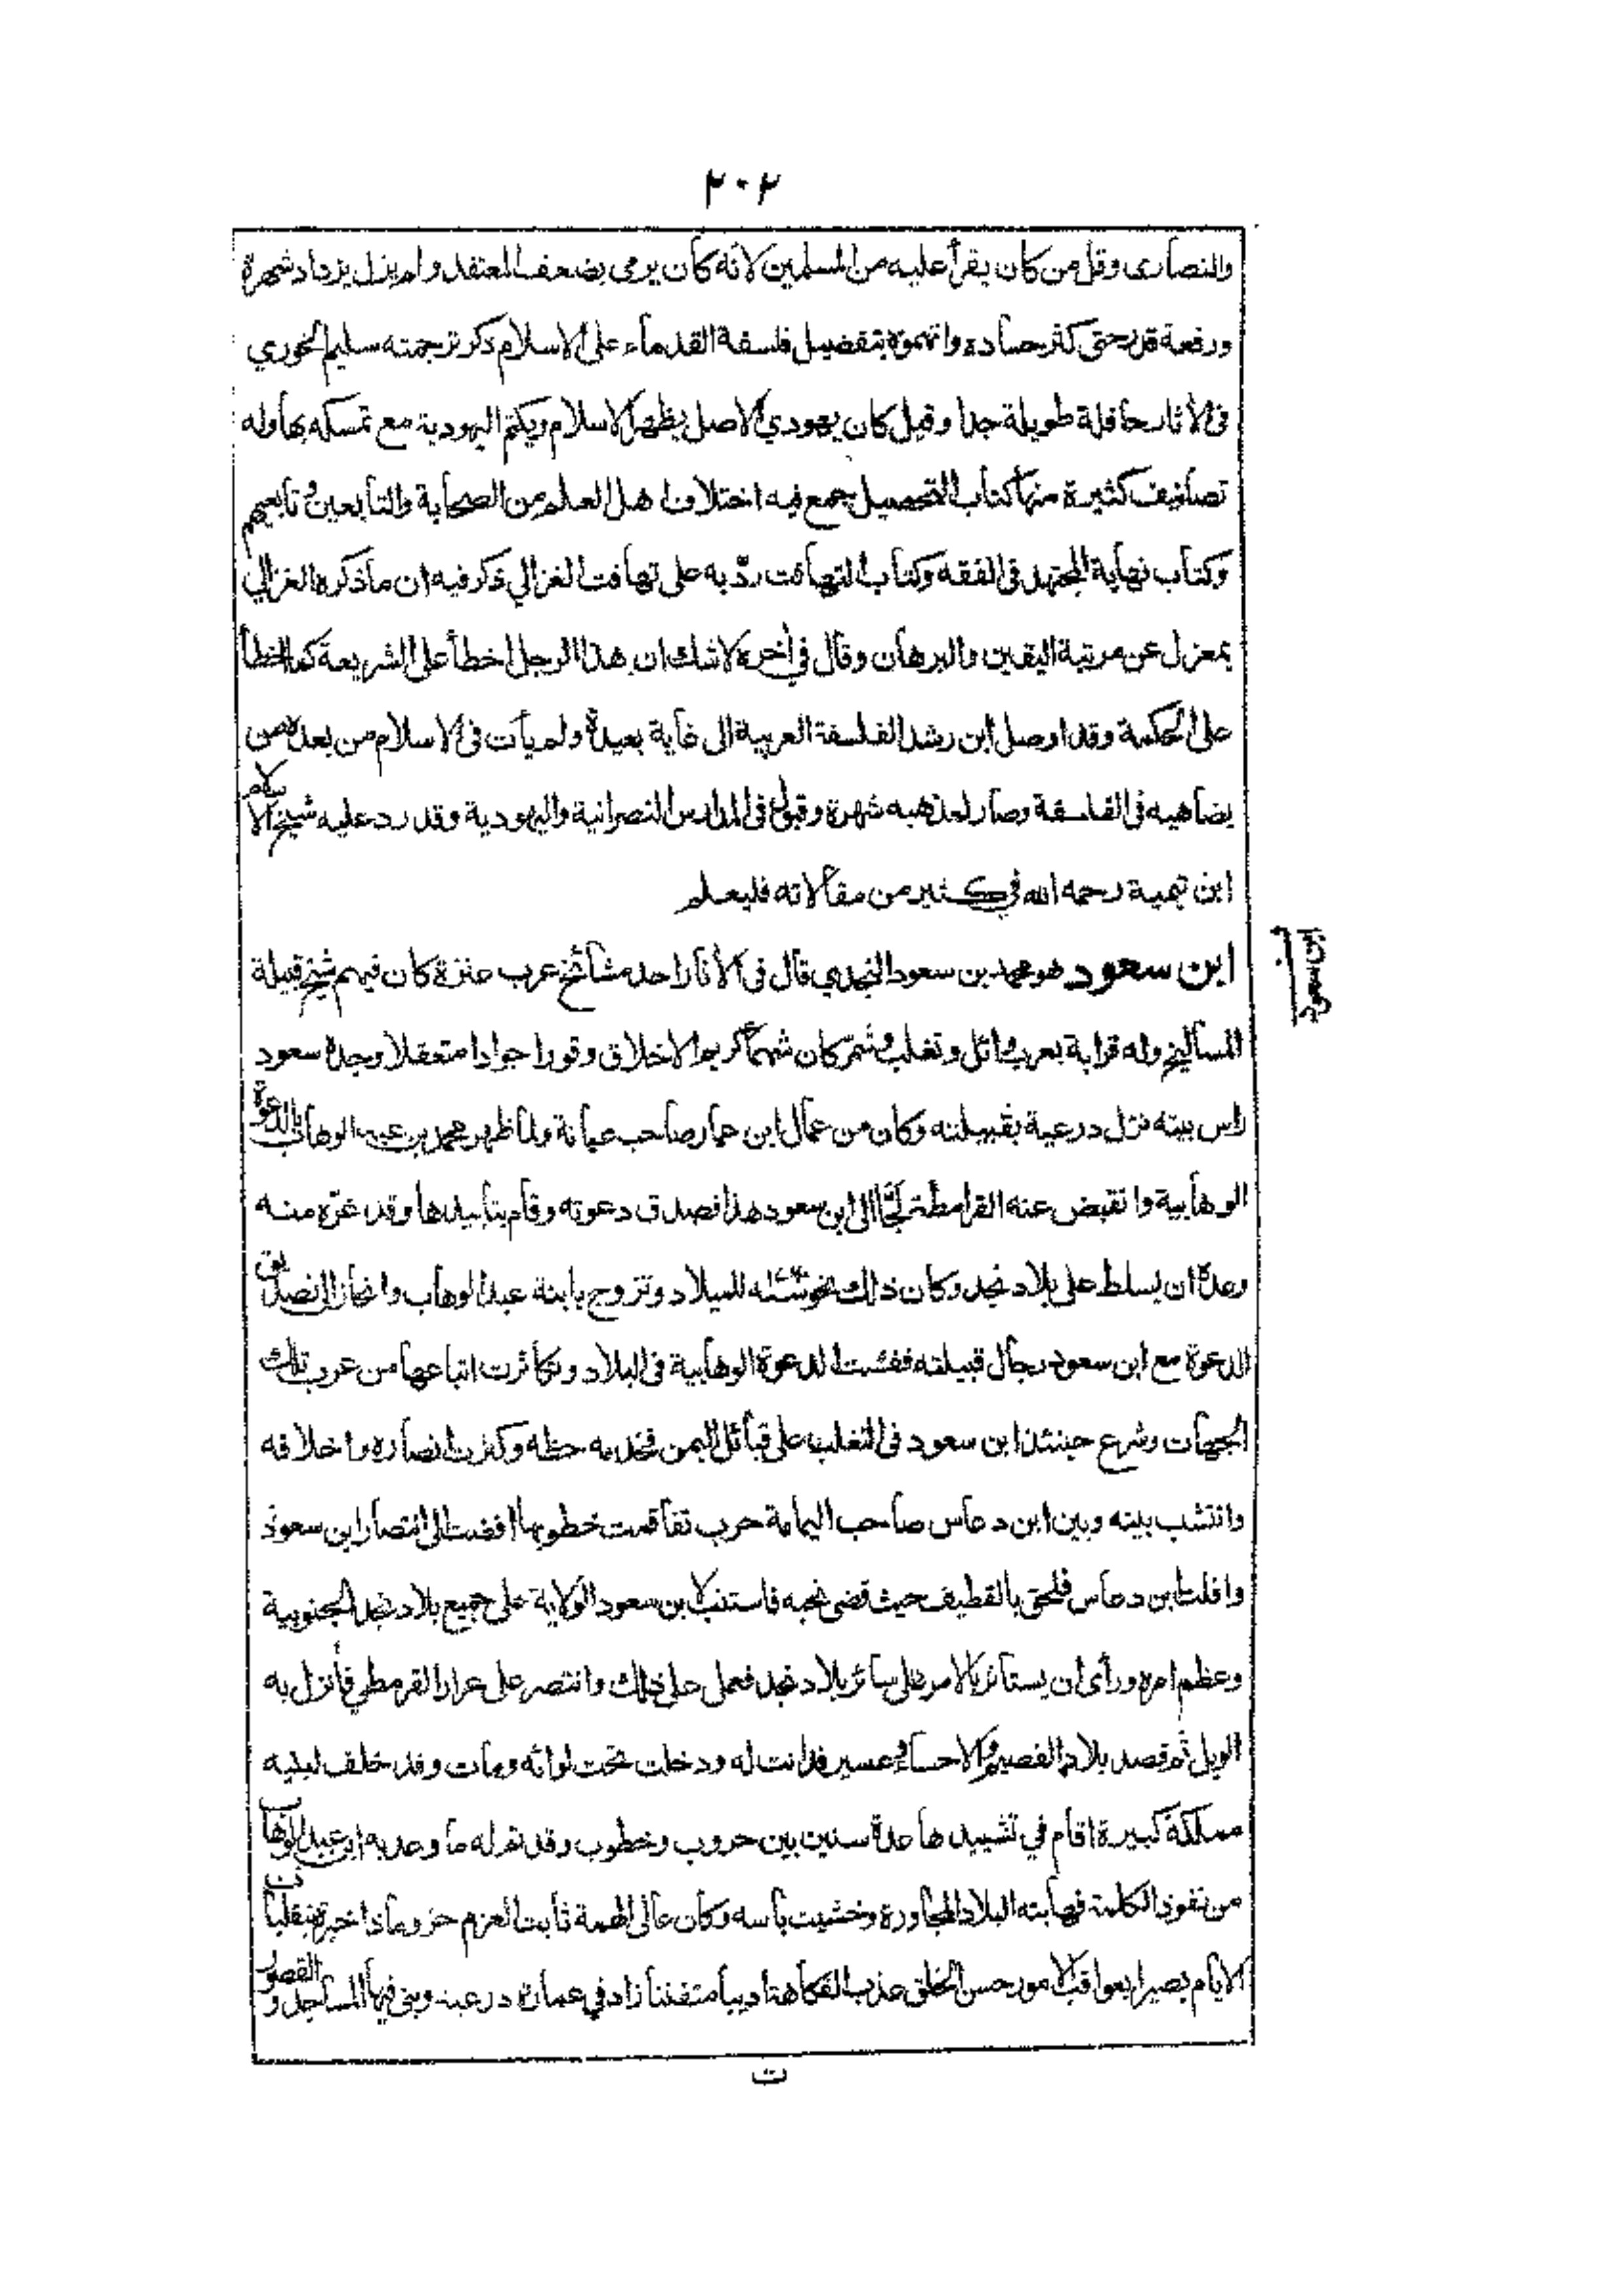 ٢٠٢
والنصارى وقل من كان يقرأ عليه من المسلمين لانه كان يرمى بضعف المعتقد ولم يزل يزداد شهرة
ورفعة قدر حتى كثر حساده واتهموه بتفضيل فلسفة القدماء على الاسلام ذكر ترجمته سليم الخوري
فى الأثار حافلة طويلة جدا وقيل كان يهودي الاصل يظهر الاسلام ويكتم اليهودية مع تمسكه بها وله
تصانيف كثيرة منها كتاب التحصيل جمع فيه اختلاف اهل العلم من الصحابة والتابعين وتابعيهم
وكتاب نهاية المجتهد فى الفقه وكتاب التهافت ردّ به على تهافت الغزالي ذكر فيه ان ما ذكره الغزالي
بمعزل عن مرتبة اليقين والبرهان وقال في أخره لا شك ان هذا الرجل اخطأ على الشريعة كما اخطأ
على الحكمة وقد اوصل ابن رشد الفلسفة العربية الى غاية بعيدة ولم يأت فى الاسلام من بعده من
يضاهيه فى الفلسفة وصار لمذهبه شهرة وقبول فى المدارس النصرانية واليهودية وقد رد عليه شيخ الاسلام
ابن تيمية رحمه الله في كثير من مقالاته فليعلم
ابن سعود هو محمد بن سعود النجدي قال فى الأثار احد مشائخ عرب عنزة كان فيهم شيخ قبيلة
المساليخ وله قرابة بعرب وائل وتغلب وشمّر كان شهما كريم الاخلاق وقورا جوادا متعقلا وجده سعود
راس بيته نزل درعية بقبيلته وكان من عمال ابن عمار صاحب عيانة ولما ظهر محمد بن عبد الوهاب بالدعوة
الوهابية وانقبض عنه القرامطة لجأ الى ابن سعود هذا فصدق دعوته وقام بتأييدها وقد غرّه منه
وعده ان يسلط على بلاد نجد وكان ذلك نحو سنة للميلاد وتزوج بابنة عبد الوهاب وانحاز الى تصديق
الدعوة مع ابن سعود رجال قبيلته ففشت الدعوة الوهابية فى البلاد وتكاثرت اتباعها من عرب تلك
الجهات وشرع حينئذ ابن سعود فى التغلب على قبائل اليمن فخدمه حظه وكثرت انصاره واحلافه
وانتشب بينه وبين ابن دعاس صاحب اليمامة حرب تفاقمت خطوبها افضت الى انتصار ابن سعود
وافلت ابن دعاس فلحق بالقطيف حيث قضى نحبه فاستتب لابن سعود الولاية على جميع بلاد نجد الجنوبية
وعظم امره ورأى ان يستأثر بالامر على سائر بلاد نجد فعمل على ذلك وانتصر على عرار القرمطي فأنزل به
الويل ثم قصد بلاد القصيم والاحساء وعسير فدانت له ودخلت تحت لوائه ومات وقد خلف لبنيه
مملكة كبيرة اقام في تشييدها عدة سنين بين حروب وخطوب وقد تم له ما وعد به ابن عبد الوهاب
من نفوذ الكلمة فهابته البلاد المجاورة وخشيت بأسه وكان عالى الهمة ثابت العزم حزوما ذا خبرة بتقلبات
الايام بصيرا بعواقب الامور حسن الخلق عذب الفكاهة اديبا متفننا زاد في عمارة درعية وبنى فيها المساجد والقصور
ت